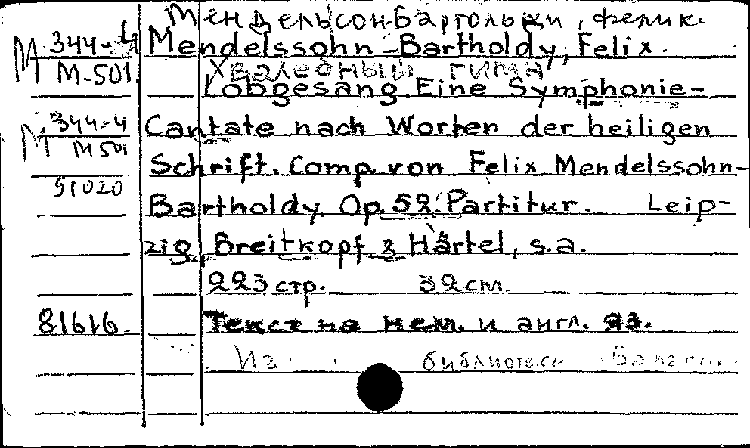 Мендельсон-Бартольди, Феликс.
M 344-4 Mendelssohn-Bartholdy, Felix.
M-501 Хвалебный гимн
Lobgesang Eine Symphonie-
M 344-4 Cantate nach Worten der heiligen
M 501 Schrift. Comp. von Felix Mendelssohn-
51020 Bartholdy Op. 52. Partitur. Leip-
zig, Breitkopf & Härtel, s.a.
223 стр. 32 cm.
81616. Текст на нем. и англ. яз.
Из библиотеки